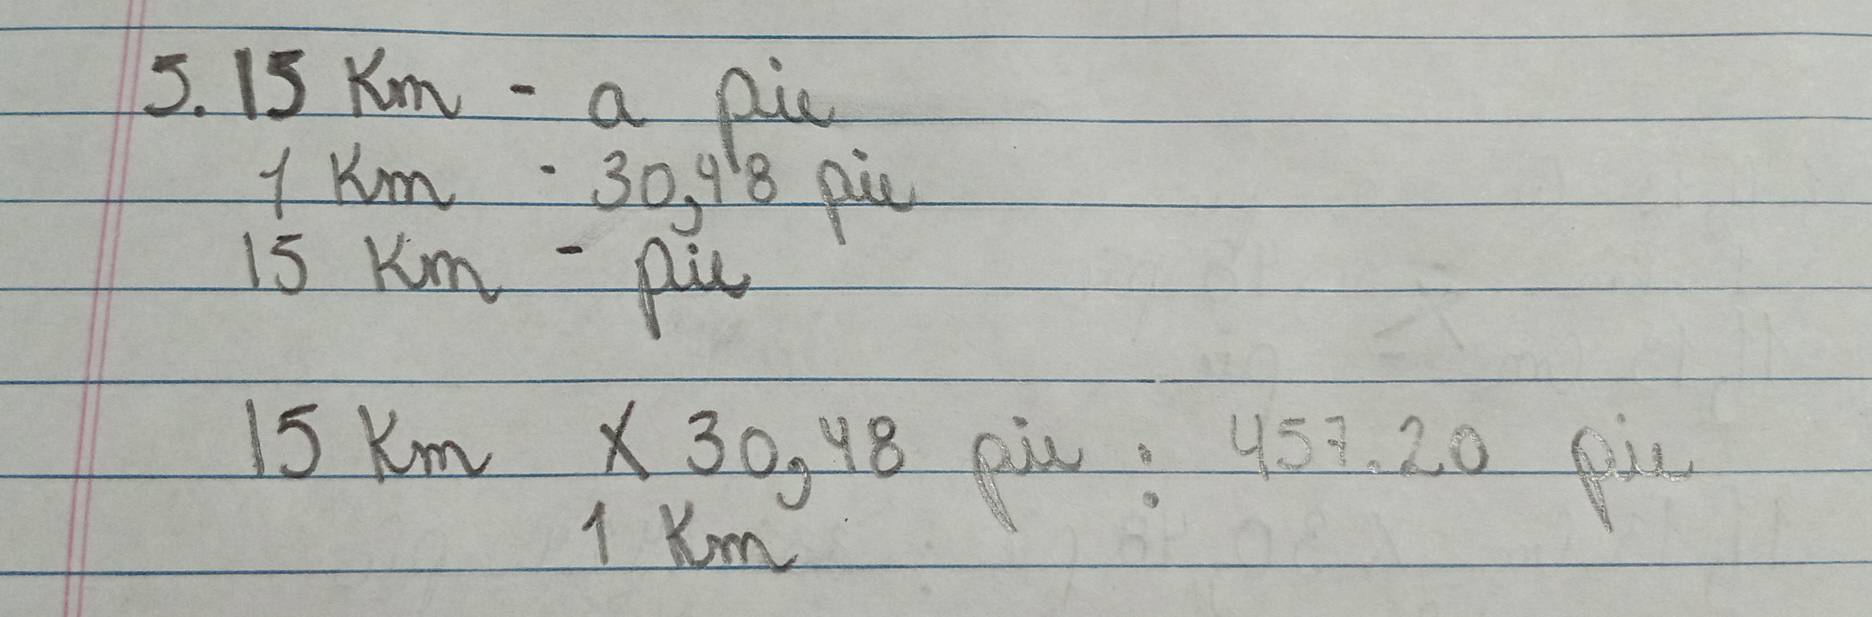 5. 15 Km - a pie
1 Km - 30,48 pie
15 Km - pie
15 Km X 30,48 pie : 457.20 pie
1 Km